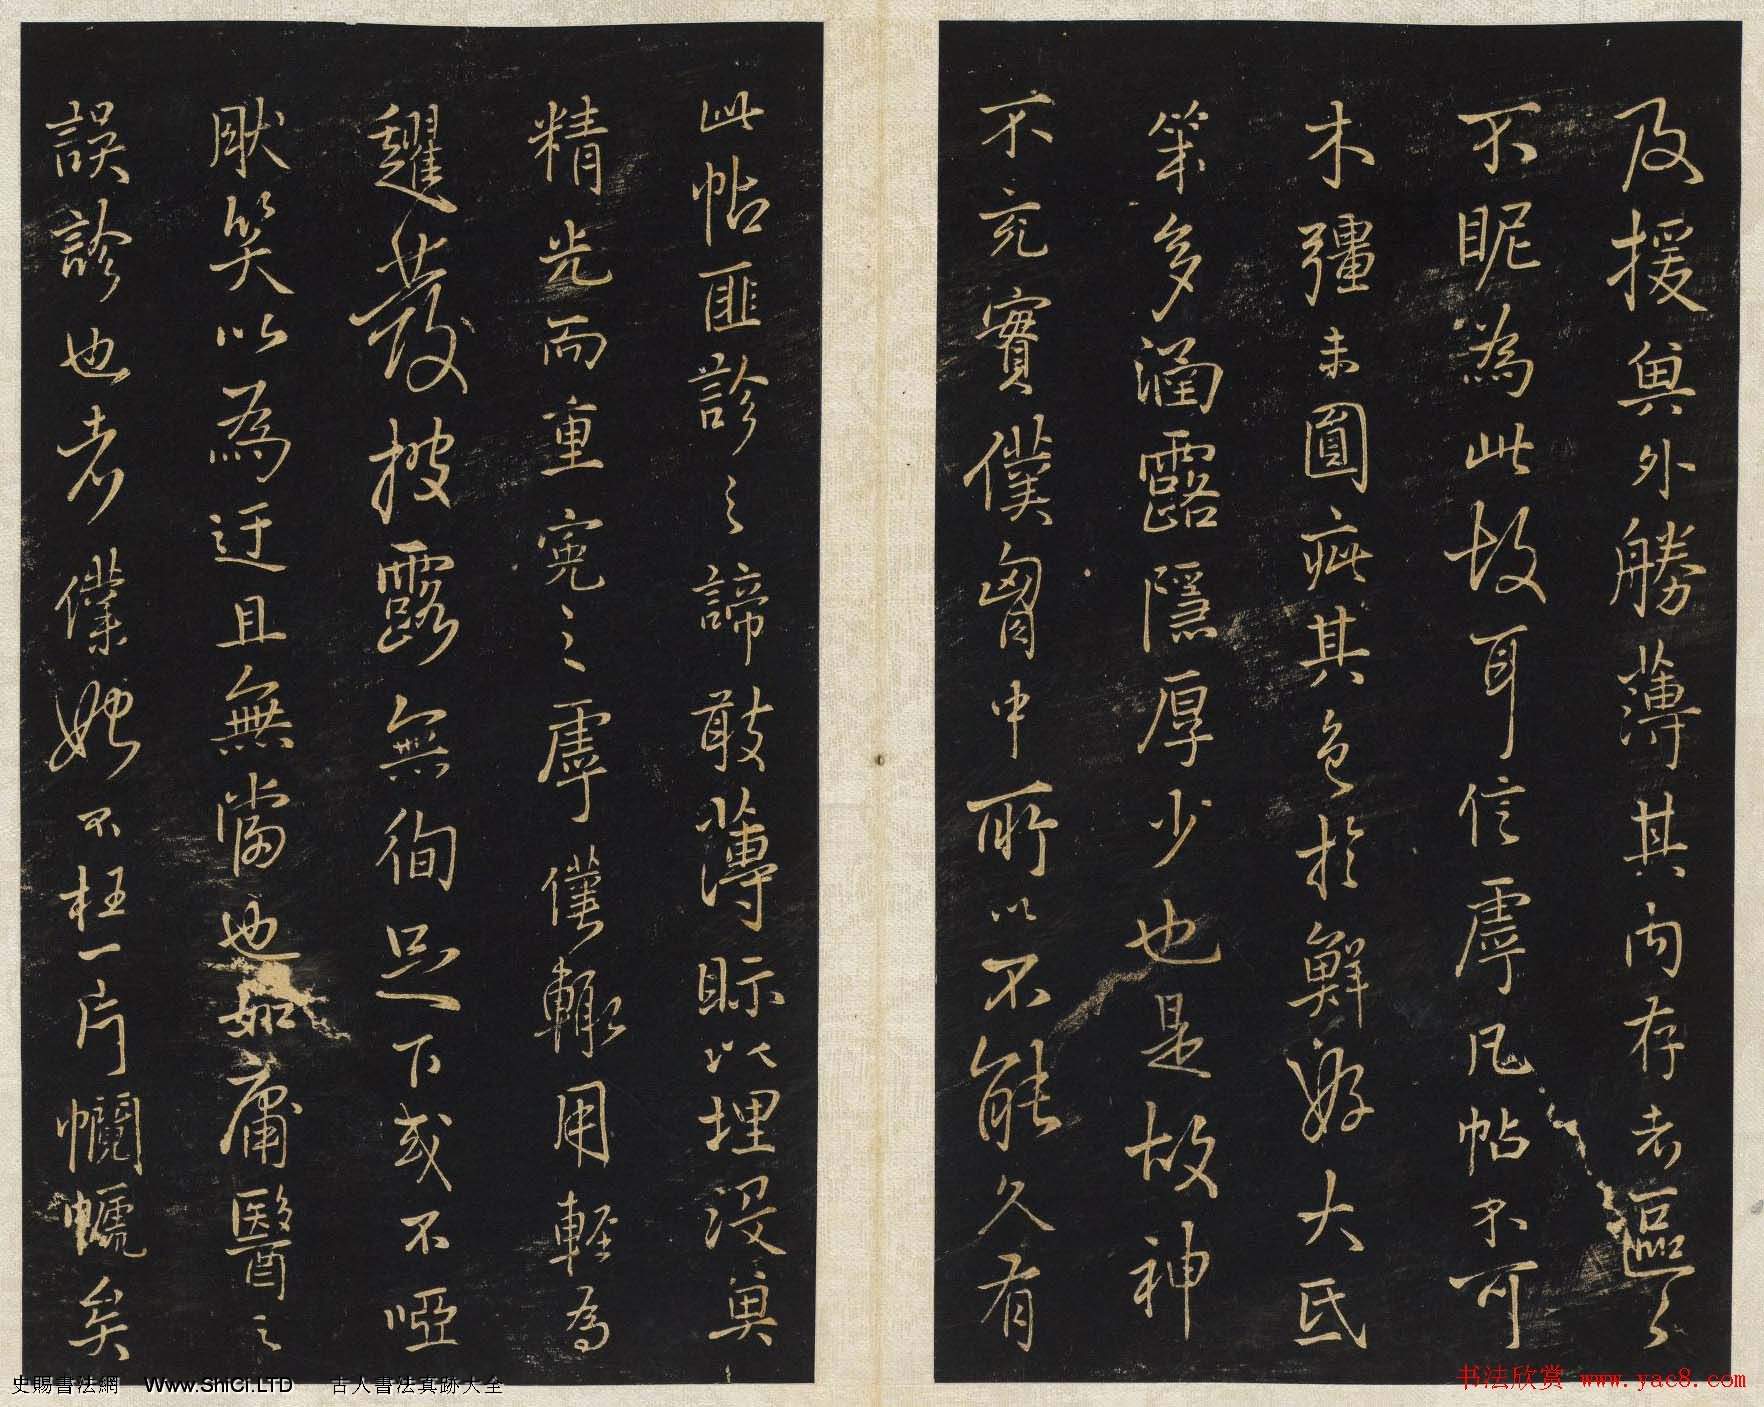 及援與外勝薄其內存者區〻
不昵為此故耳信虖凡帖不可
木彊未圓疵其色於鮮好大氐
筆多涵露隱厚少也是故神
不充實僕匈中所以不能久有
此帖匪診之諦敢薄眎以埋沒其
精光而重冤之虖僅輒用輕為
趯發披露無徇足下或不啞
眹笑以為迂且無當也如庸醫之
誤診也者僕始不枉一片
矣
史賜書法網 Www.ShiCi.LTD 古人書法真跡大全
书法欣赏 www.yac8.com